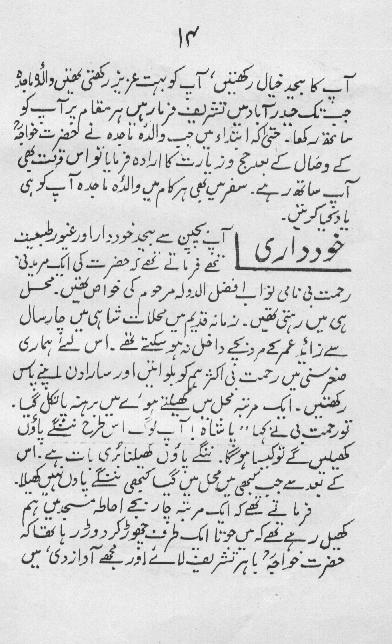 ۱۴
آپ کا بیحد خیال رکھتیں، آپ کو بہت عزیز رکھتی تھیں والدہ ماجدہ
جب تک حیدرآباد میں تشریف فرما رہیں ہر مقام پر آپ کو
ساتھ رکھا۔ حتیٰ کہ ابتداء میں جب والدہ ماجدہ نے حضرت خواجہؒ
کے وصال کے بعد حج و زیارت کا ارادہ فرمایا تو اس وقت بھی
آپ ساتھ رہے۔ سفر میں بھی ہر کام میں والدہ ماجدہ آپ کو ہی
یاد کیا کرتیں۔
خودداری
آپ بچپن سے بیحد خوددار اور غیور طبیعت
تھے فرماتے تھے کہ حضرت کی ایک مریدنی
رحمت بی نامی نواب افضل الدولہ مرحوم کی خواص تھیں۔ محل
ہی میں رہتی تھیں۔ زمانہ قدیم میں محلات شاہی میں چار سال
سے زائد عمر کے مرد بچے داخل نہ ہو سکتے تھے۔ اس لئے ہماری
صغر سنی میں رحمت بی اکثر ہم کو بلواتیں اور سارا دن اپنے پاس
رکھتیں۔ ایک مرتبہ محل میں کھیلتے ہوئے میں برہنہ پا نکل گیا۔
تو رحمت بی نے کہا "پاشاہ! آپ لوگ اس طرح ننگے پاؤں
کھیلیں گے تو کیسا ہوگا۔ ننگے پاؤں کھیلنا بری بات ہے۔ اس
کے بعد سے جب کبھی میں محل میں گیا کبھی ننگے پاؤں نہیں کھیلا۔
فرماتے تھے کہ ایک مرتبہ چار بچے احاطہ مسجد میں ہم
کھیل رہے تھے کہ میں جوتا ایک طرف چھوڑ کر دوڑ رہا تھا کہ
حضرت خواجہؒ باہر تشریف لائے اور مجھے آواز دی، میں